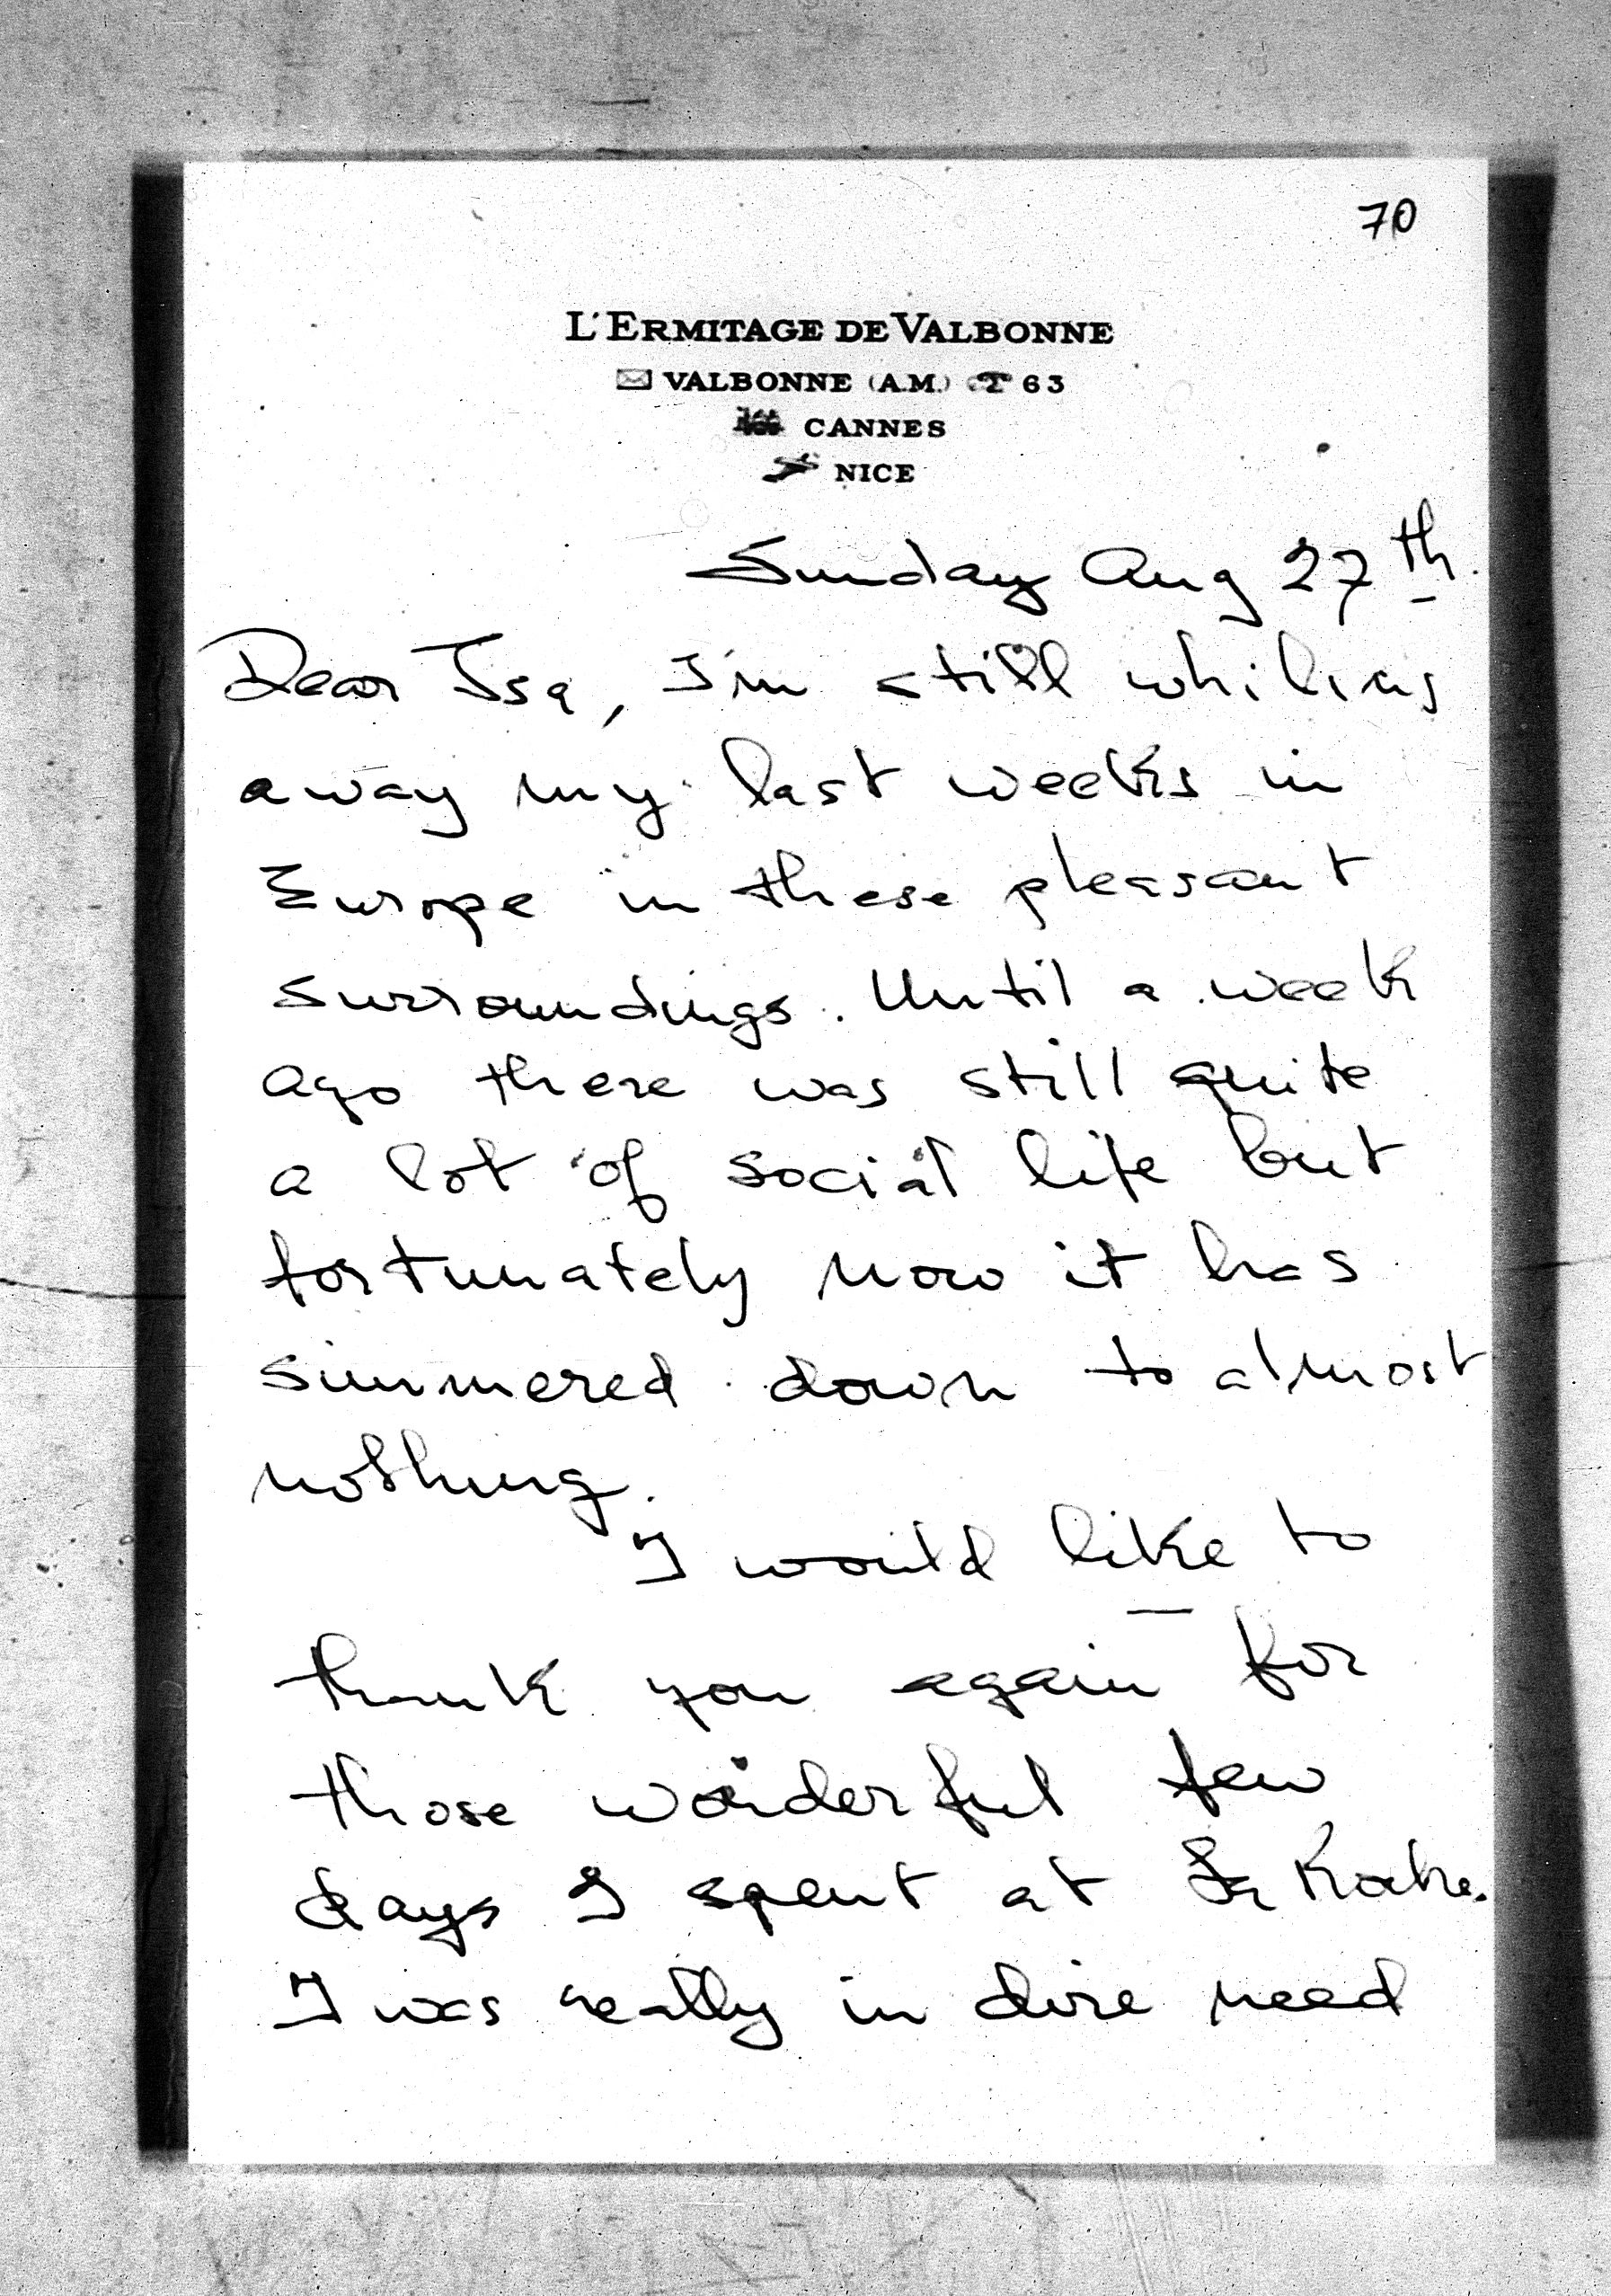 70
L'ERMITAGE DE VALBONNE
VALBONNE (A.M.) 63
CANNES
NICE
Sunday Aug 27th.
Dear Isa, I'm still whiling
away my last weeks in
Europe in these pleasant
surroundings. Until a week
ago there was still quite
a lot of social life but
fortunately now it has
simmered down to almost
nothing.
I would like to
thank you again for
those wonderful few
days I spent at
I was really in dire need